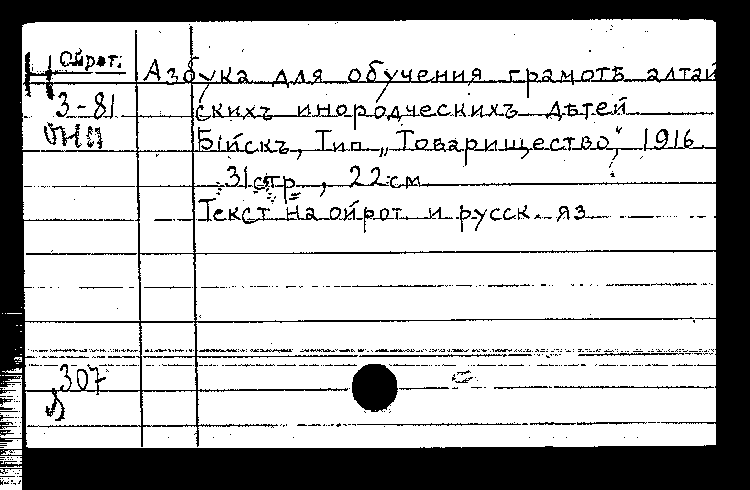 Ойрот.
3-81
Азбука для обучения грамотѣ алтай
скихъ инородческихъ дѣтей
Бійскъ, Тип „Товарищество“, 1916
31 стр, 22 см
Текст на ойрот. и русск. яз
307